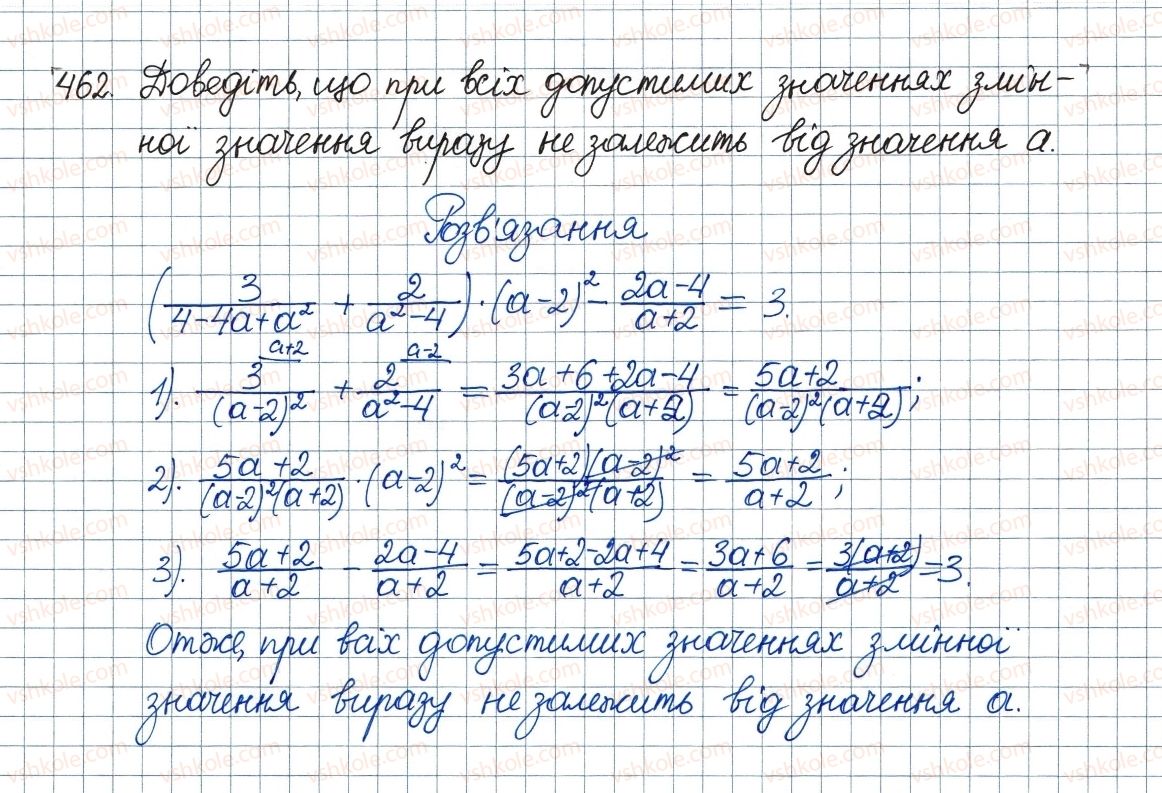 462. Доведіть, що при всіх допустимих значеннях змін-
ної значення виразу не залежить від значення a.
Розв'язання
(3/(4-4a+a²) + 2/(a²-4)) · (a-2)² - (2a-4)/(a+2) = 3.
1). 3^(a+2)/(a-2)² + 2^(a-2)/(a²-4) = (3a+6+2a-4)/((a-2)²(a+2)) = (5a+2)/((a-2)²(a+2));
2). (5a+2)/((a-2)²(a+2)) · (a-2)² = ((5a+2)(a-2)²)/((a-2)²(a+2)) = (5a+2)/(a+2);
3). (5a+2)/(a+2) - (2a-4)/(a+2) = (5a+2-2a+4)/(a+2) = (3a+6)/(a+2) = 3(a+2)/(a+2) = 3.
Отже, при всіх допустимих значеннях змінної
значення виразу не залежить від значення a.